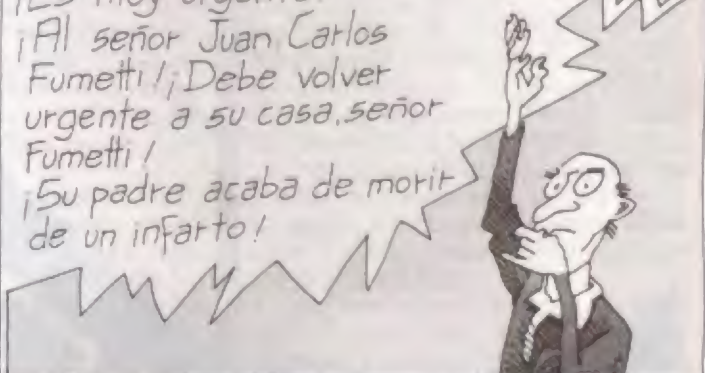 ¡Es muy urgente!
¡Al señor Juan Carlos
Fumetti!¡Debe volver
urgente a su casa, señor
Fumetti!
¡Su padre acaba de morir
de un infarto!